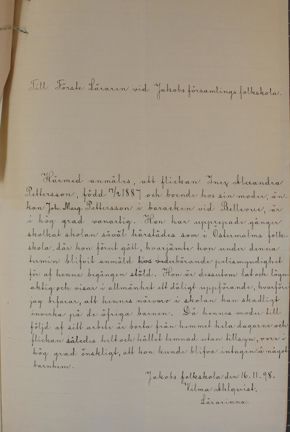 Till Förste Läraren vid Jakobs församlings folkskola.
Härmed anmäles, att flickan Inez Alexandra
Pettersson, född 1887 och boende hos sin moder, än-
kan Joh. Marg. Pettersson i baracken vid Bellevue, är
i hög grad vanartig. Hon har upprepade gånger
skolkat skolan såväl härstädes som i Östermalms folk-
skola, där hon förut gått, hvarjämte hon under denna
termin blifvit anmäld hos vederbörande polismyndighet
för af henne begången stöld. Hon är dessutom lat och lögn-
aktig och visar i allmänhet ett dåligt uppförande, hvarför
jag befarar, att hennes närvaro i skolan kan skadligt
inverka på de öfriga barnen. Då hennes moder till
följd af sitt arbete är borta från hemmet hela dagarne och
flickan således helt och hållet lemnad utan tillsyn, vore i
hög grad önskligt, att hon kunde blifva intagen å något
barnhem.
Jakobs folkskola den 16.11.98.
Wilma Ahlquist.
Lärarinna.